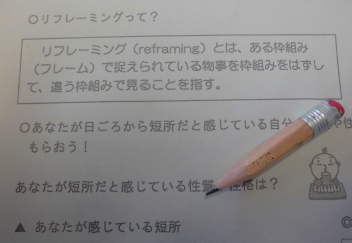 〇リフレーミングって？
リフレーミング（reframing）とは、ある枠組み
（フレーム）で捉えられている物事を枠組みをはずし
て、違う枠組みで見ることを指す。
〇あなたが日ごろから短所だと感じている自分
もらおう！
あなたが短所だと感じている性質 性格は？
▲ あなたが感じている短所